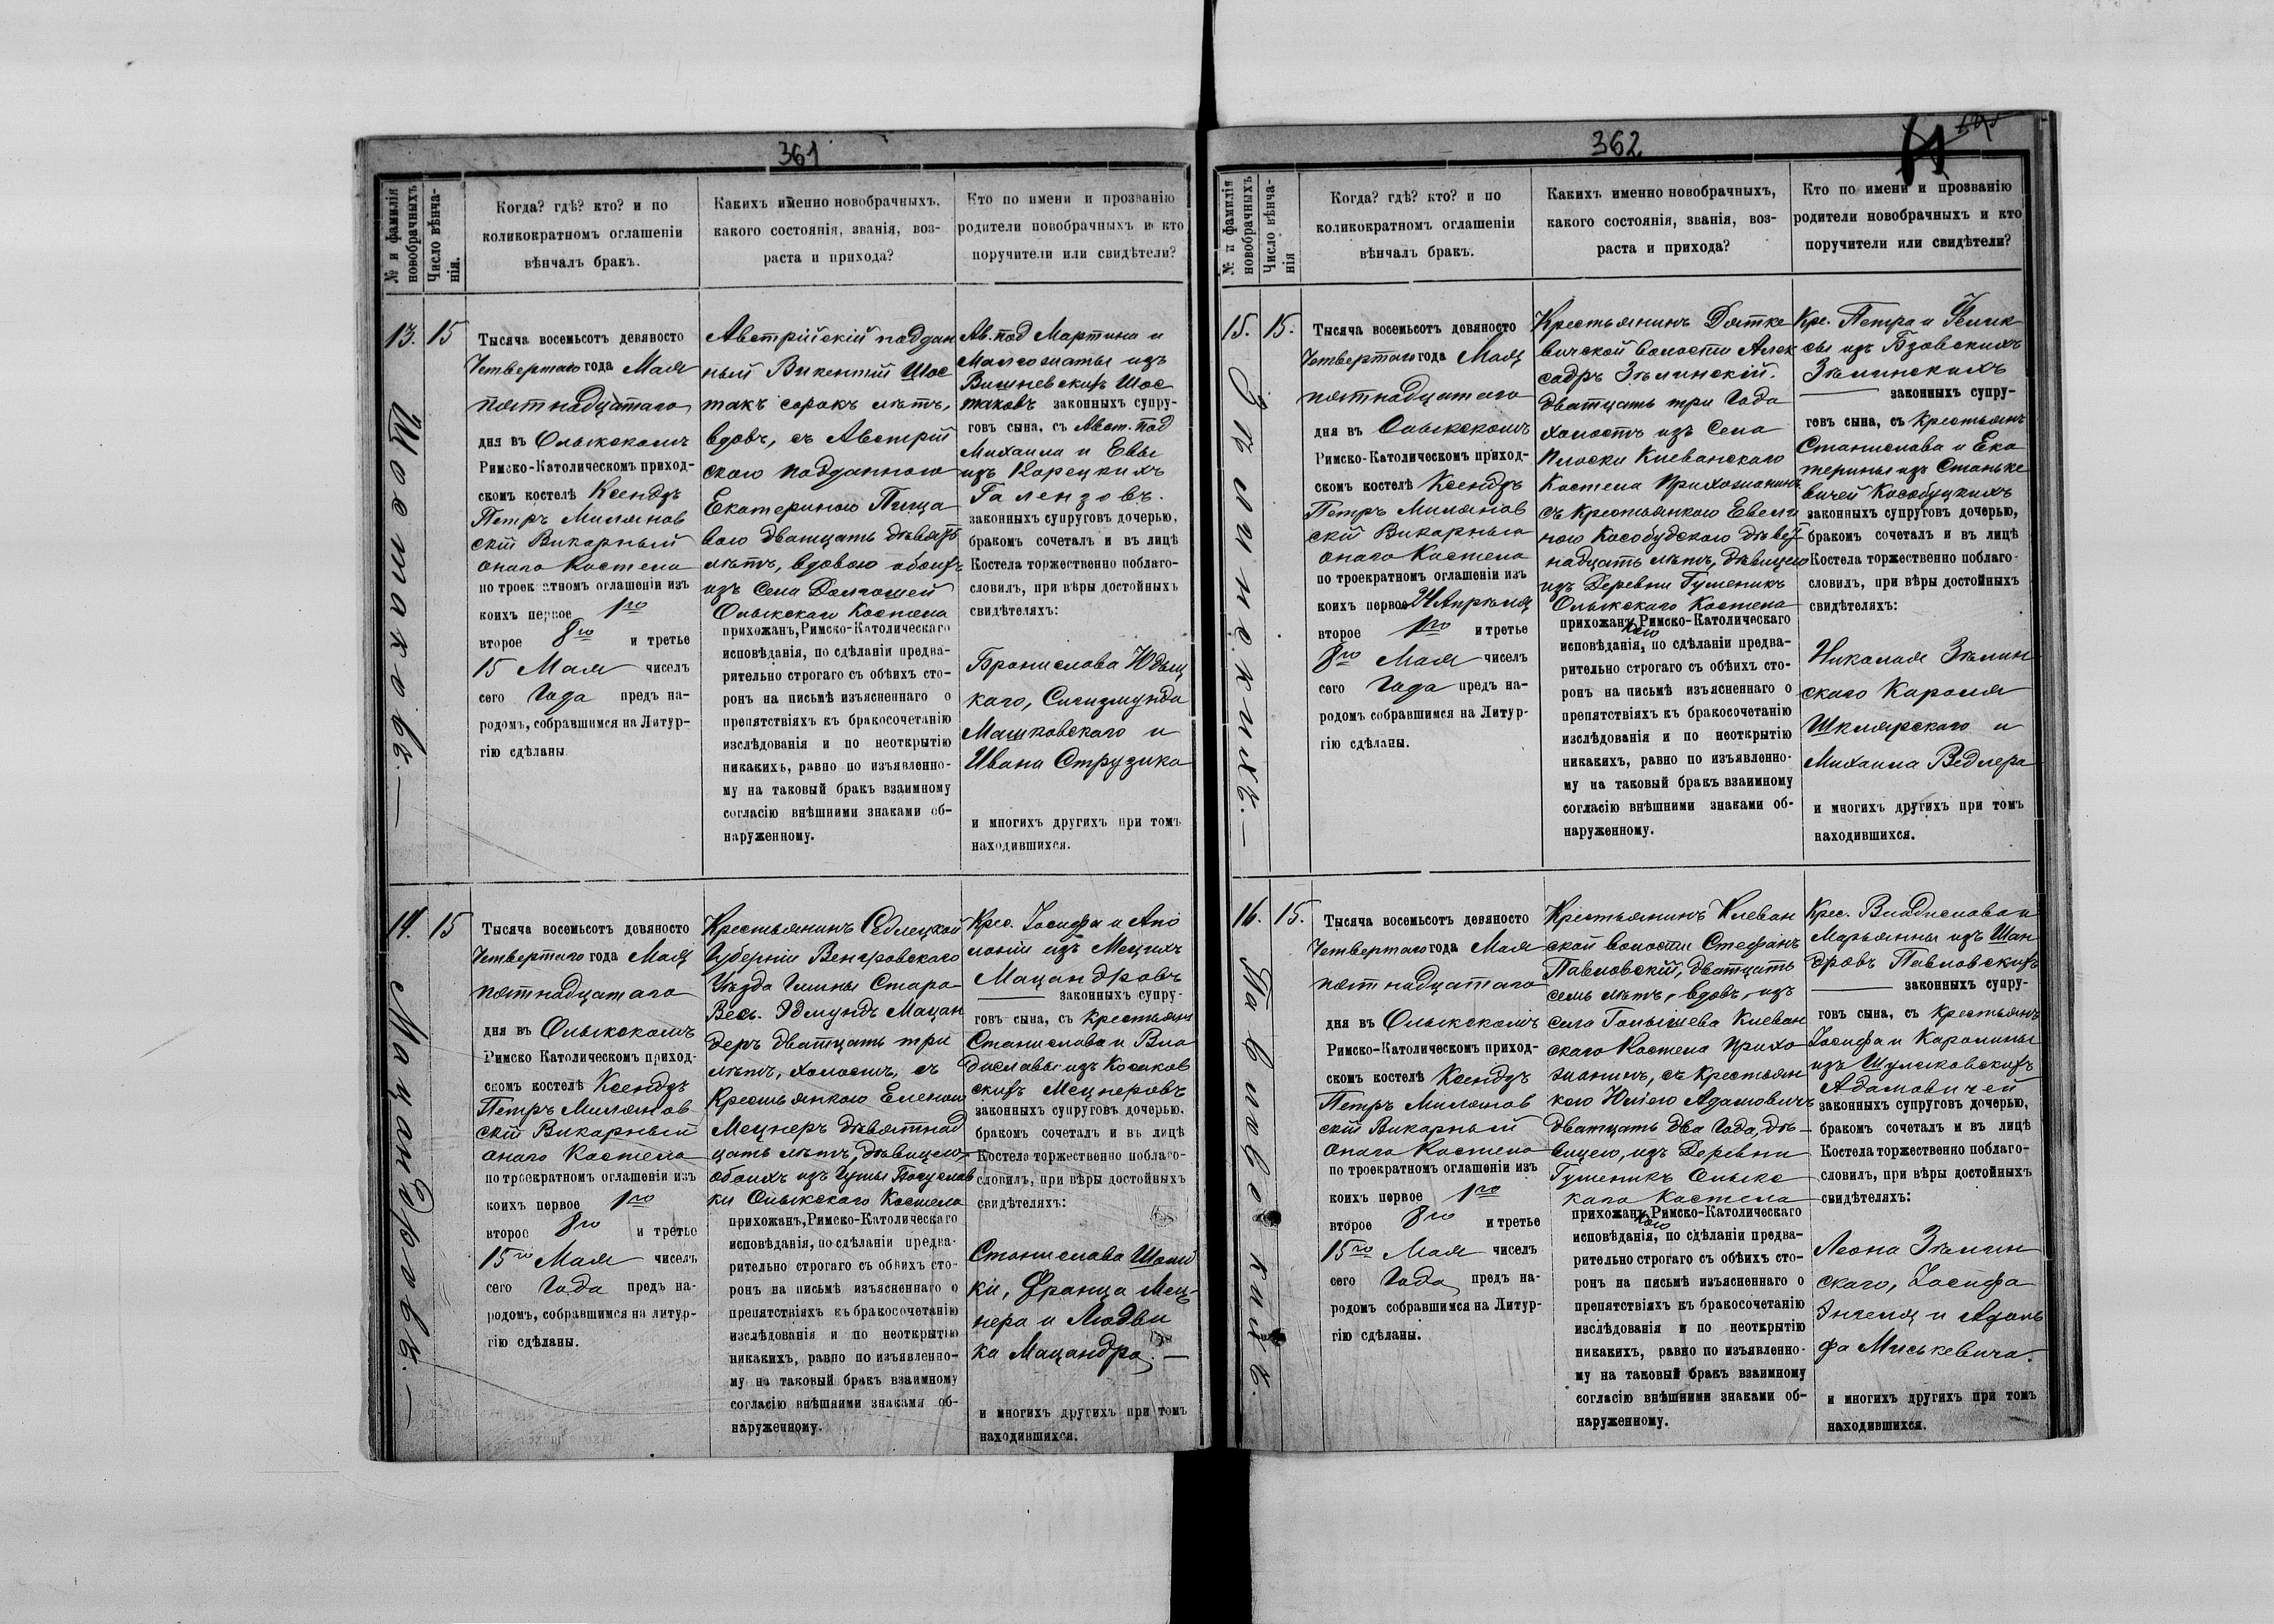 361
№ и фамилія
новобрачныхъ
Число вѣнча-
нія.
Когда? гдѣ? кто? и по
коликократномъ оглашеніи
вѣнчалъ бракъ.
Какихъ именно новобрачныхъ,
какого состоянія, званія, воз-
раста и прихода?
Кто по имени и прозванію
родители новобрачныхъ и кто
поручители или свидѣтели?
13.
Шостаковъ.
15
Тысяча восемьсотъ девяносто
Четвертаго года Мая
пятнадцатаго
дня въ Олыкскомъ
Римско-Католическомъ приход-
скомъ костелѣ Ксендзъ
Петръ Милянов
скій Викарный
онаго Костела
по троекратномъ оглашеніи изъ
коихъ первое 1го
второе 8го и третье
15 Мая чиселъ
сего Года предъ на-
родомъ, собравшимся на Литур-
гію сдѣланы.
Австрійскій поддан
ный Викентій Шос
такъ сорокъ лѣтъ,
вдовъ, съ Австрій
скою подданною
Екатериною Пища
вою двадцать девять
лѣтъ, вдовою обоихъ
изъ Села Долгошей
Олыкскаго Костела
прихожанъ, Римско-Католическаго
исповѣданія, по сдѣланіи предва-
рительно строгаго съ обѣихъ сто-
ронъ на письмѣ изъясненнаго о
препятствіяхъ къ бракосочетанію
изслѣдованія и по неоткрытію
никакихъ, равно по изъявленно-
му на таковый бракъ взаимному
согласію внѣшними знаками об-
наруженному.
Ав. под Мартина и
Малгожаты изъ
Вишневскихъ Шос
таковъ законныхъ супру-
говъ сына, съ Авст. под
Михаила и Евы
изъ Корецкихъ
Галензовъ.
законныхъ супруговъ дочерью,
бракомъ сочеталъ и въ лицѣ
Костела торжественно поблаго-
словилъ, при вѣры достойныхъ
свидѣтеляхъ:
Бронислава Юдыц
каго, Сигизмунда
Машковскаго и
Ивана Струзика
и многихъ другихъ при томъ
находившихся.
14.
Мацандровъ.
15
Тысяча восемьсотъ девяносто
Четвертаго года Мая
пятнадцатаго
дня въ Олыкскомъ
Римско Католическомъ приход-
скомъ костелѣ Ксендзъ
Петръ Милянов
скій Викарный
онаго Костела
по троекратномъ оглашеніи изъ
коихъ первое 1го
второе 8го и третье
15го Мая чиселъ
сего Года предъ на-
родомъ, собравшимся на литур-
гію сдѣланы.
Крестьянинъ Седлецкой
Губерніи Венгровскаго
Уѣзда Гмины Стара
Весь. Эдмундъ Мацан
деръ двадцать три
лѣтъ, холостъ, съ
Крестьянкою Еленою
Мецнеръ девятнад
цать лѣтъ, дѣвицею,
обоихъ изъ Гуты Богуслав
ки Олыкскаго Костела
прихожанъ, Римско-Католическаго
исповѣданія, по сдѣланіи предва-
рительно строгаго съ обѣихъ сто-
ронъ на письмѣ изъясненнаго о
препятствіяхъ къ бракосочетанію
изслѣдованія и по неоткрытію
никакихъ, равно по изъявленно-
му на таковый бракъ взаимному
согласію внѣшними знаками об-
наруженному.
Крес. Іосифа и Апо
лоніи изъ
Мацандровъ
законныхъ супру-
говъ сына, съ Крестьянъ
Станислава и Вла
диславы изъ Косаков
скихъ Мецнеровъ
законныхъ супруговъ дочерью,
бракомъ сочеталъ и въ лицѣ
Костела торжественно поблаго-
словилъ, при вѣры достойныхъ
свидѣтеляхъ:
Станислава
Франца Мец-
нера и Людви
ка Мацандра.
и многихъ другихъ при томъ
находившихся.
362
№ и фамилія
новобрачныхъ
Число вѣнча-
нія
Когда? гдѣ? кто? и по
коликократномъ оглашеніи
вѣнчалъ бракъ.
Какихъ именно новобрачныхъ,
какого состоянія, званія, воз-
раста и прихода?
Кто по имени и прозванію
родители новобрачныхъ и кто
поручители или свидѣтели?
15.
Зѣлинскихъ.
15.
Тысяча восемьсотъ девяносто
Четвертаго года Мая
пятнадцатаго
дня въ Олыкскомъ
Римско-Католическомъ приход-
скомъ костелѣ Ксендзъ
Петръ Милянов
скій Викарный
онаго Костела
по троекратномъ оглашеніи изъ
коихъ первое 24 Апрѣля
второе 1го и третье
8го Мая чиселъ
сего Года предъ на-
родомъ собравшимся на Литур-
гію сдѣланы.
Крестьянинъ Дятке
вичской волости Алек
садръ Зѣлинскій.
двадцать три Года
холостъ изъ Села
Плоски Клеванскаго
Костела Прихожанинъ
съ Крестьянкою Евели
ною Кособудскою девят
надцать лѣтъ, дѣвицею
изъ Деревни Гуменикъ
Олыкскаго Костела
прихожан кою Римско-Католическаго
исповѣданія, по сдѣланіи предва-
рительно строгаго съ обѣихъ сто-
ронъ на письмѣ изъясненнаго о
препятствіяхъ къ бракосочетанію
изслѣдованія и по неоткрытію
никакихъ, равно по изъявленно-
му на таковый бракъ взаимному
согласію внѣшними знаками об-
наруженному.
Кре. Петра и Фелик
сы изъ Бзовскихъ
Зѣлинскихъ
законныхъ супру-
говъ сына, съ Крестьянъ
Станислава и Ека
терины изъ Станьке
вичей Кособуцкихъ
законныхъ супруговъ дочерью,
бракомъ сочеталъ и въ лицѣ
Костела торжественно поблаго-
словилъ, при вѣры достойныхъ
свидѣтеляхъ:
Николая Зѣлин
скаго Кароля
Шклярскаго и
Михаила Ведлера
и многихъ другихъ при томъ
находившихся.
16.
Павловскихъ.
15.
Тысяча восемьсотъ девяносто
Четвертаго года Мая
пятнадцатаго
дня въ Олыкскомъ
Римско-Католическомъ приход-
скомъ костелѣ Ксендзъ
Петръ Милянов
скій Викарный
онаго Костела
по троекратномъ оглашеніи изъ
коихъ первое 1го
второе 8го и третье
15го Мая чиселъ
сего Года предъ на-
родомъ собравшимся на Литур-
гію сдѣланы.
Крестьянинъ Клеван
ской волости Стефанъ
Павловскій, двадцать
семь лѣтъ, вдовъ, изъ
села Голышева Клеван
скаго Костела Прихо
жанинъ, съ Крестьян
кою Юліею Адамовичъ
двадцать два Года, дѣ-
вицею, изъ Деревни
Гуменикъ Олыкс
каго Костела
прихожан кою Римско-Католическаго
исповѣданія, по сдѣланіи предва-
рительно строгаго съ обѣихъ сто-
ронъ на письмѣ изъясненнаго о
препятствіяхъ къ бракосочетанію
изслѣдованія и по неоткрытію
никакихъ, равно по изъявленно-
му на таковый бракъ взаимному
согласію внѣшними знаками об-
наруженному.
Крес. Владислава и
Марьянны изъ Шан
дровъ Павловскихъ
законныхъ супру-
говъ сына, съ Крестьянъ
Іосифа и Каролины
изъ Шулковскихъ
Адамовичей
законныхъ супруговъ дочерью,
бракомъ сочеталъ и въ лицѣ
Костела торжественно поблаго-
словилъ, при вѣры достойныхъ
свидѣтеляхъ:
Леона Зѣлин
скаго, Іосифа
Энгеля и Адоль
фа Миськевича.
и многихъ другихъ при томъ
находившихся.